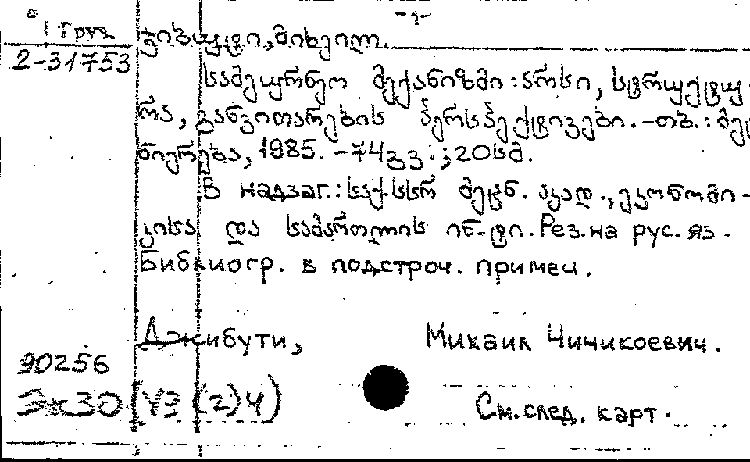 -1-
1 Груз
ჯიბუტი, მიხეილ.
2-31753
სამეურნეო მექანიზმი: არსი, სტრუქტუ-
რა, განვითარების პერსპექტივები. -თბ.: მეც
ნიერება, 1985. -74გვ.; 20სმ.
В надзаг.: საქ.სსრ მეცნ. აკად., ეკონომი-
კისა და სამართლის ინ-ტი. Рез. на рус. яз.
Библиогр. в подстроч. примеч.
Джибути, Михаил Чичикоевич.
90256
Эк30(УЗ(2)4)
См. след. карт.